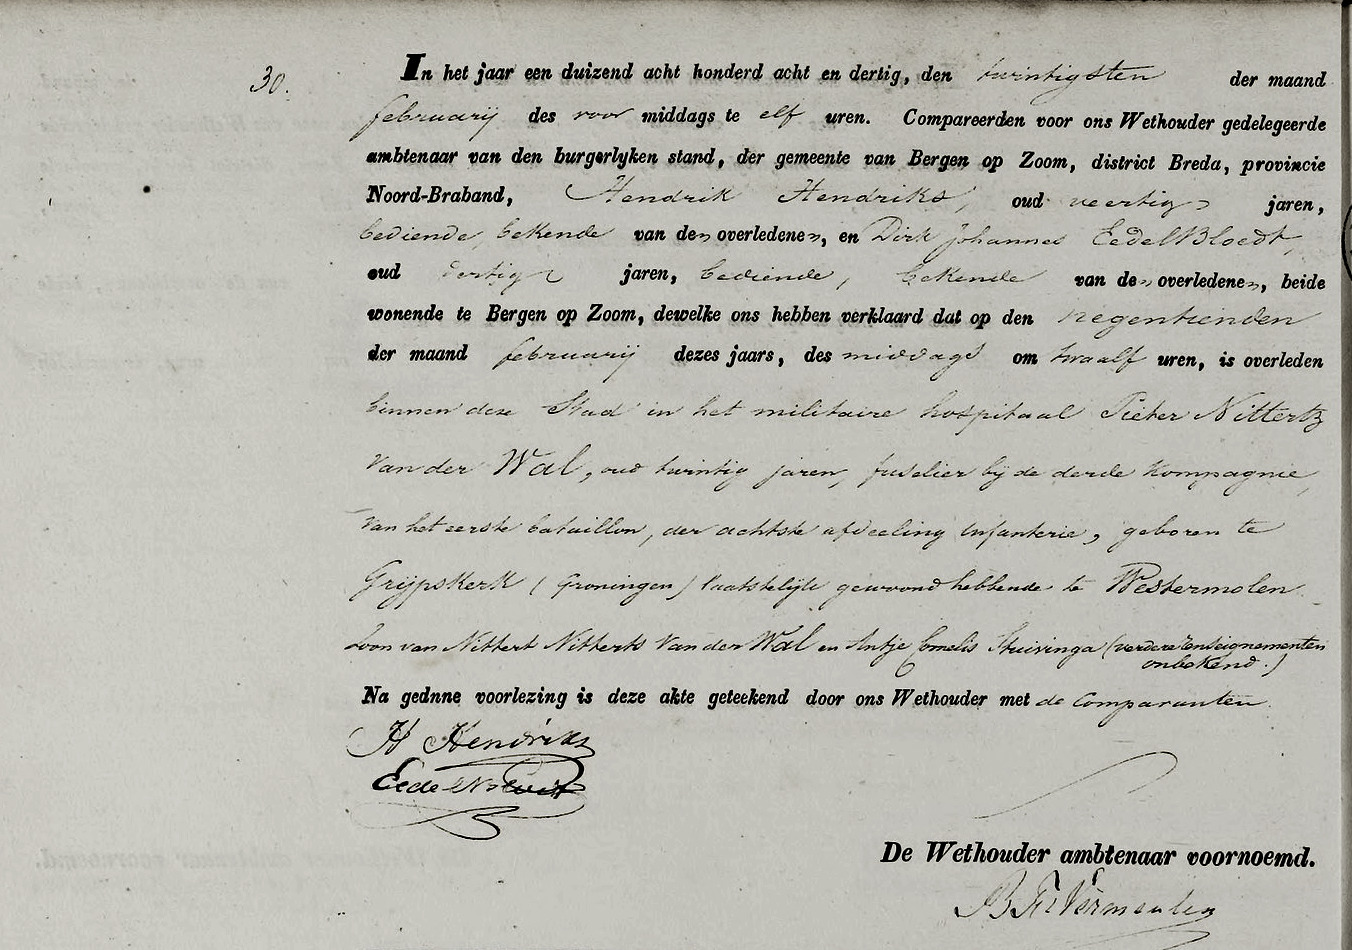 30.
In het jaar een duizend acht honderd acht en dertig, den twintigsten der maand
februarij des voor middags te elf uren. Compareerden voor ons Wethouder gedelegeerde
ambtenaar van den burgerlyken stand, der gemeente van Bergen op Zoom, district Breda, provincie
Noord-Braband, Hendrik Hendriks, oud veertig jaren,
bediende, bekende van den overledenen, en Dirk Johannes EedelBloedt,
oud dertig jaren, bediende, bekende van den overledenen, beide
wonende te Bergen op Zoom, dewelke ons hebben verklaard dat op den negentienden
der maand februarij dezes jaars, des middags om twaalf uren, is overleden
binnen deze Stad in het militaire hospitaal Pieter Nittertz
van der Wal, oud twintig jaren, fuselier bij de derde kompagnie,
van het eerste bataillon, der achtste afdeeling infanterie, geboren te
Grijpskerk (Groningen) laatstelijk gewoond hebbende te Westermolen
Zoon van Nittert Nitterts van der Wal en Antje Cornelis Stuivinga (verdere renseignementen
onbekend.)
Na gednne voorlezing is deze akte geteekend door ons Wethouder met de Comparanten.
H Hendriks
De Wethouder ambtenaar voornoemd.
Vermeulen